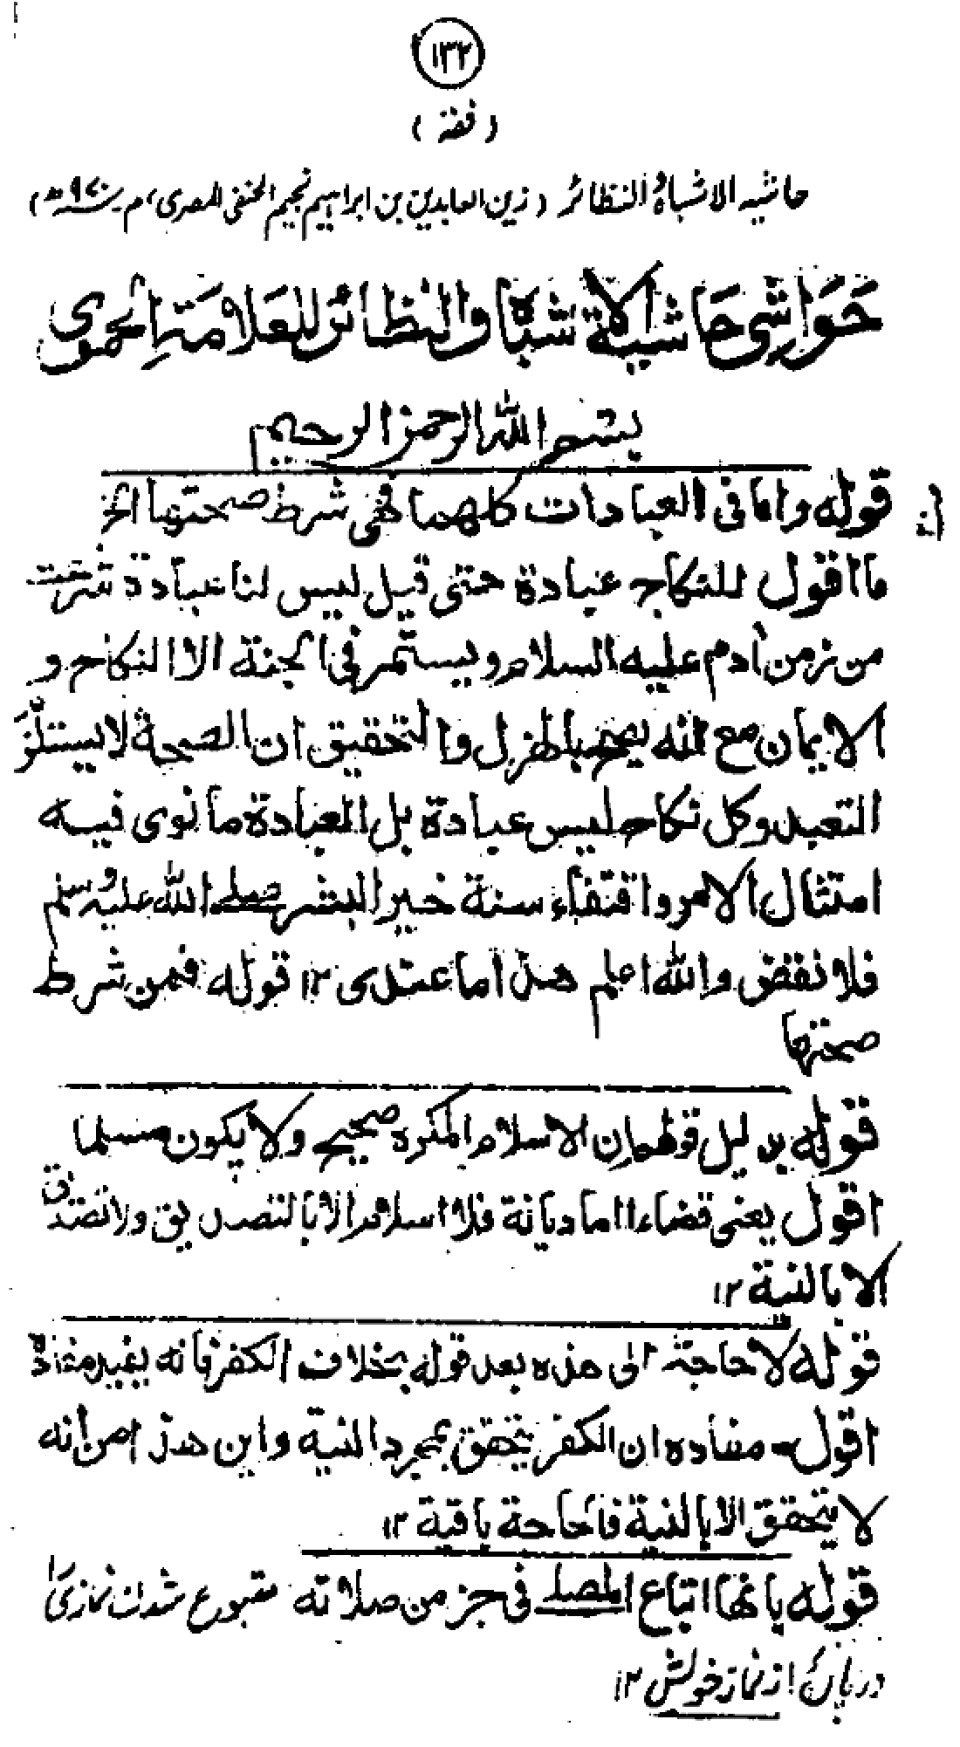 ١٣٢
(فقه)
حاشیه الاشباہ النظائر (زین العابدین بن ابراہیم نجیم الحنفی المصری، م ۹۷۰ھ)
حَوَاشی حَاشیۃ الاشباہ والنظائر للعَلامَۃ الحموی
بسم اللہ الرحمن الرحیم
قوله واما فی العبادات کلہا فہی شرط صحتہا الخ
ما اقول للنکاح عبادۃ حتی قیل لیس لنا عبادۃ شرعت
من زمن اٰدم علیه السلام ویستمر فی الجنة الا النکاح و
الایمان مع انه یصح بالھزل والتحقیق ان الصحة لا یستلزم
التعبد وکل نکاح لیس عبادۃ بل العبادۃ ما نوی فیه
امتثال الامر واقتفاء سنة خیر البشر صلی اللہ علیہ وسلم
فلا نقض واللہ اعلم ھذا ما عندی ۱۲ قوله فمن شرط
صحتہا
قوله بدلیل قولھم ان الاسلام المکرہ صحیح ولا یکون مسلما
اقول یعنی قضاء اما دیانة فلا اسلام الا بالتصدیق ولا تصدیق
الا بالنیة ۱۲
قوله لا حاجة الی ھذہ بعد قوله بخلاف الکفر فانه یغیر مفادہ
اقول مفادہ ان الکفر یتحقق بمجرد النیة واین ھذا من انه
لا یتحقق الا بالنیة فالحاجة باقیة ۱۲
قوله بانھا اتباع المصلی فی جز من صلاته متبوع شدن نمازی را
در پارۂ از نماز خویش ۱۲